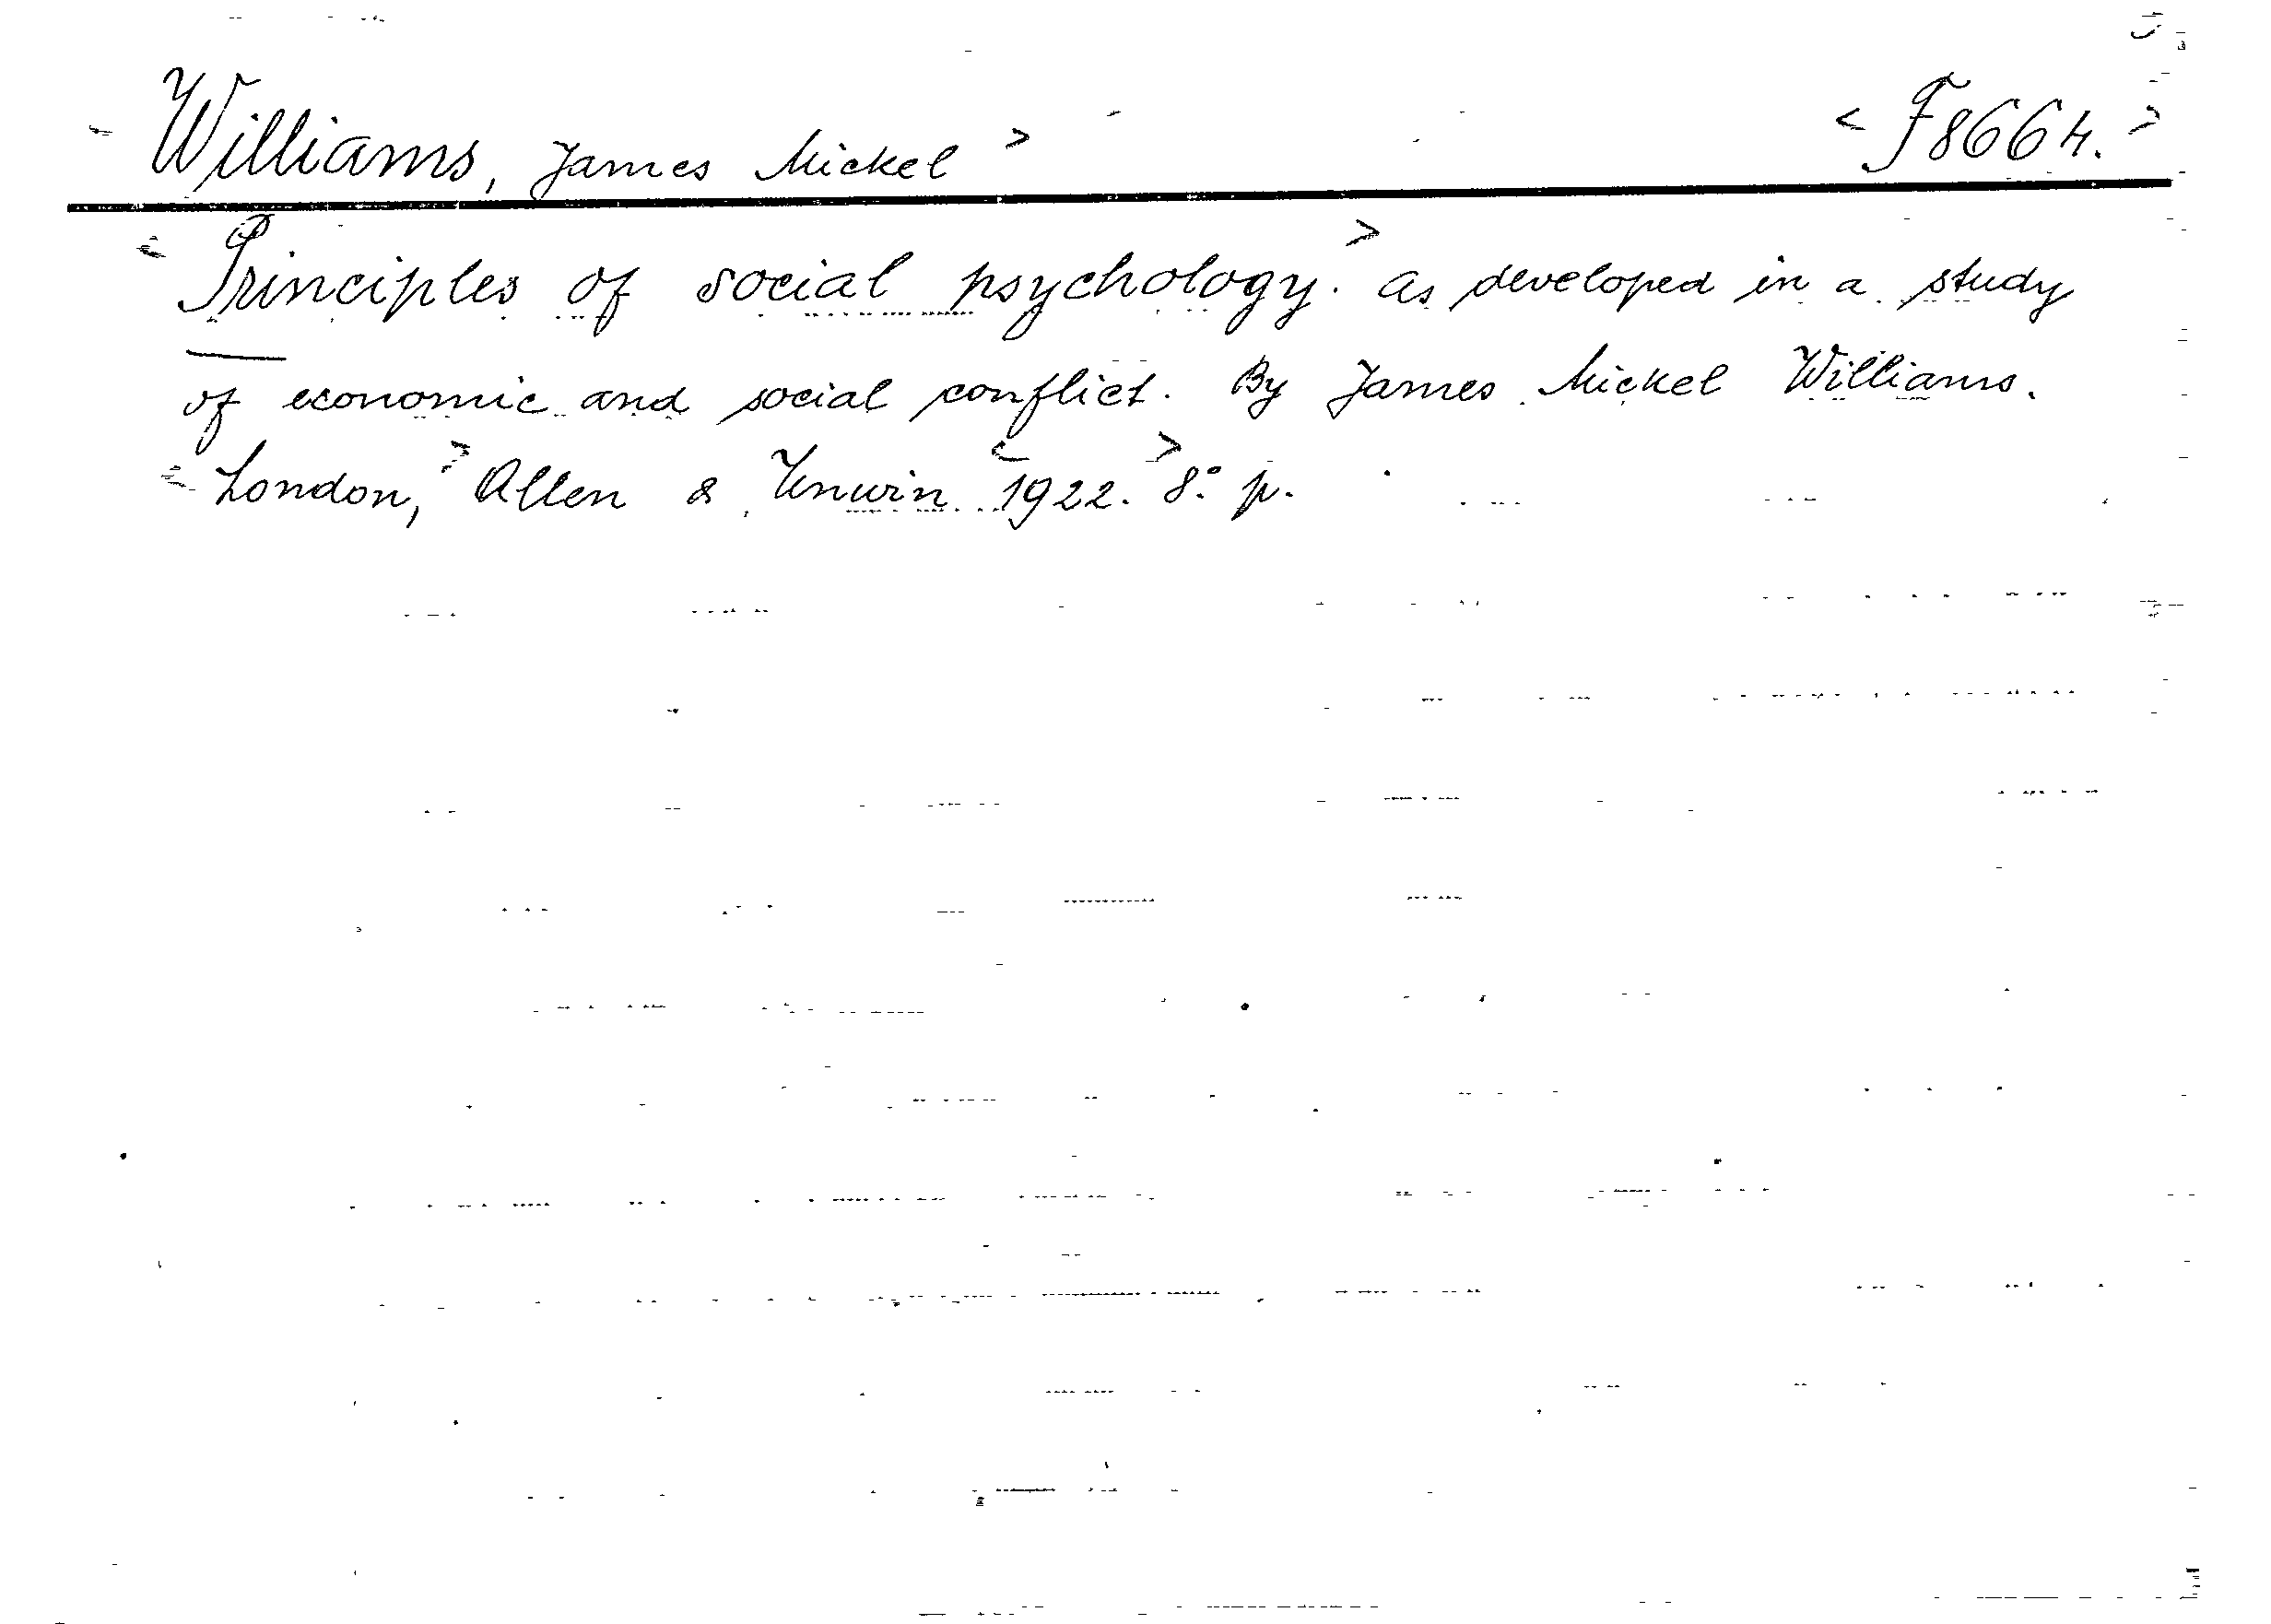 < Williams, James Mickel > < F8664. >
< Principles of social psychology. > as developed in a study
of economic and social conflict. By James Mickel Williams.
< London, > Allen & Unwin < 1922. > 8° p.